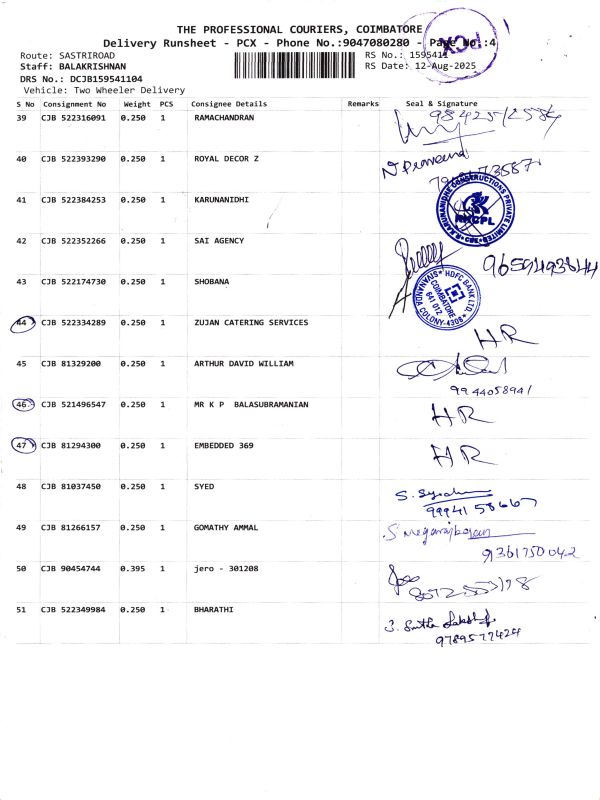 THE PROFESSIONAL COURIERS, COIMBATORE
Delivery Runsheet - PCX - Phone No.:9047080280 - Page No.:4
PCX
Route: SASTRIROAD
RS No.: 1595411
Staff: BALAKRISHNAN
RS Date: 12-Aug-2025
DRS No.: DCJB159541104
Vehicle: Two Wheeler Delivery
S No Consignment No Weight PCS Consignee Details Remarks Seal & Signature
39 CJB 522316091 0.250 1 RAMACHANDRAN
40 CJB 522393290 0.250 1 ROYAL DECOR Z
41 CJB 522384253 0.250 1 KARUNANIDHI
KARUNANIDHI CONSTRUCTIONS PRIVATE LIMITED
KKCPL
CBE
42 CJB 522352266 0.250 1 SAI AGENCY 9659493844
43 CJB 522174730 0.250 1 SHOBANA
HDFC BANK LTD.
SIVANANDA COLONY-4308
COIMBATORE
641 012
44 CJB 522334289 0.250 1 ZUJAN CATERING SERVICES HR
45 CJB 81329200 0.250 1 ARTHUR DAVID WILLIAM
9944058941
46 CJB 521496547 0.250 1 MR K P BALASUBRAMANIAN HR
47 CJB 81294300 0.250 1 EMBEDDED 369 HR
48 CJB 81037450 0.250 1 SYED
9994158667
49 CJB 81266157 0.250 1 GOMATHY AMMAL
9361750042
50 CJB 90454744 0.395 1 jero - 301208
51 CJB 522349984 0.250 1 BHARATHI
9789577424